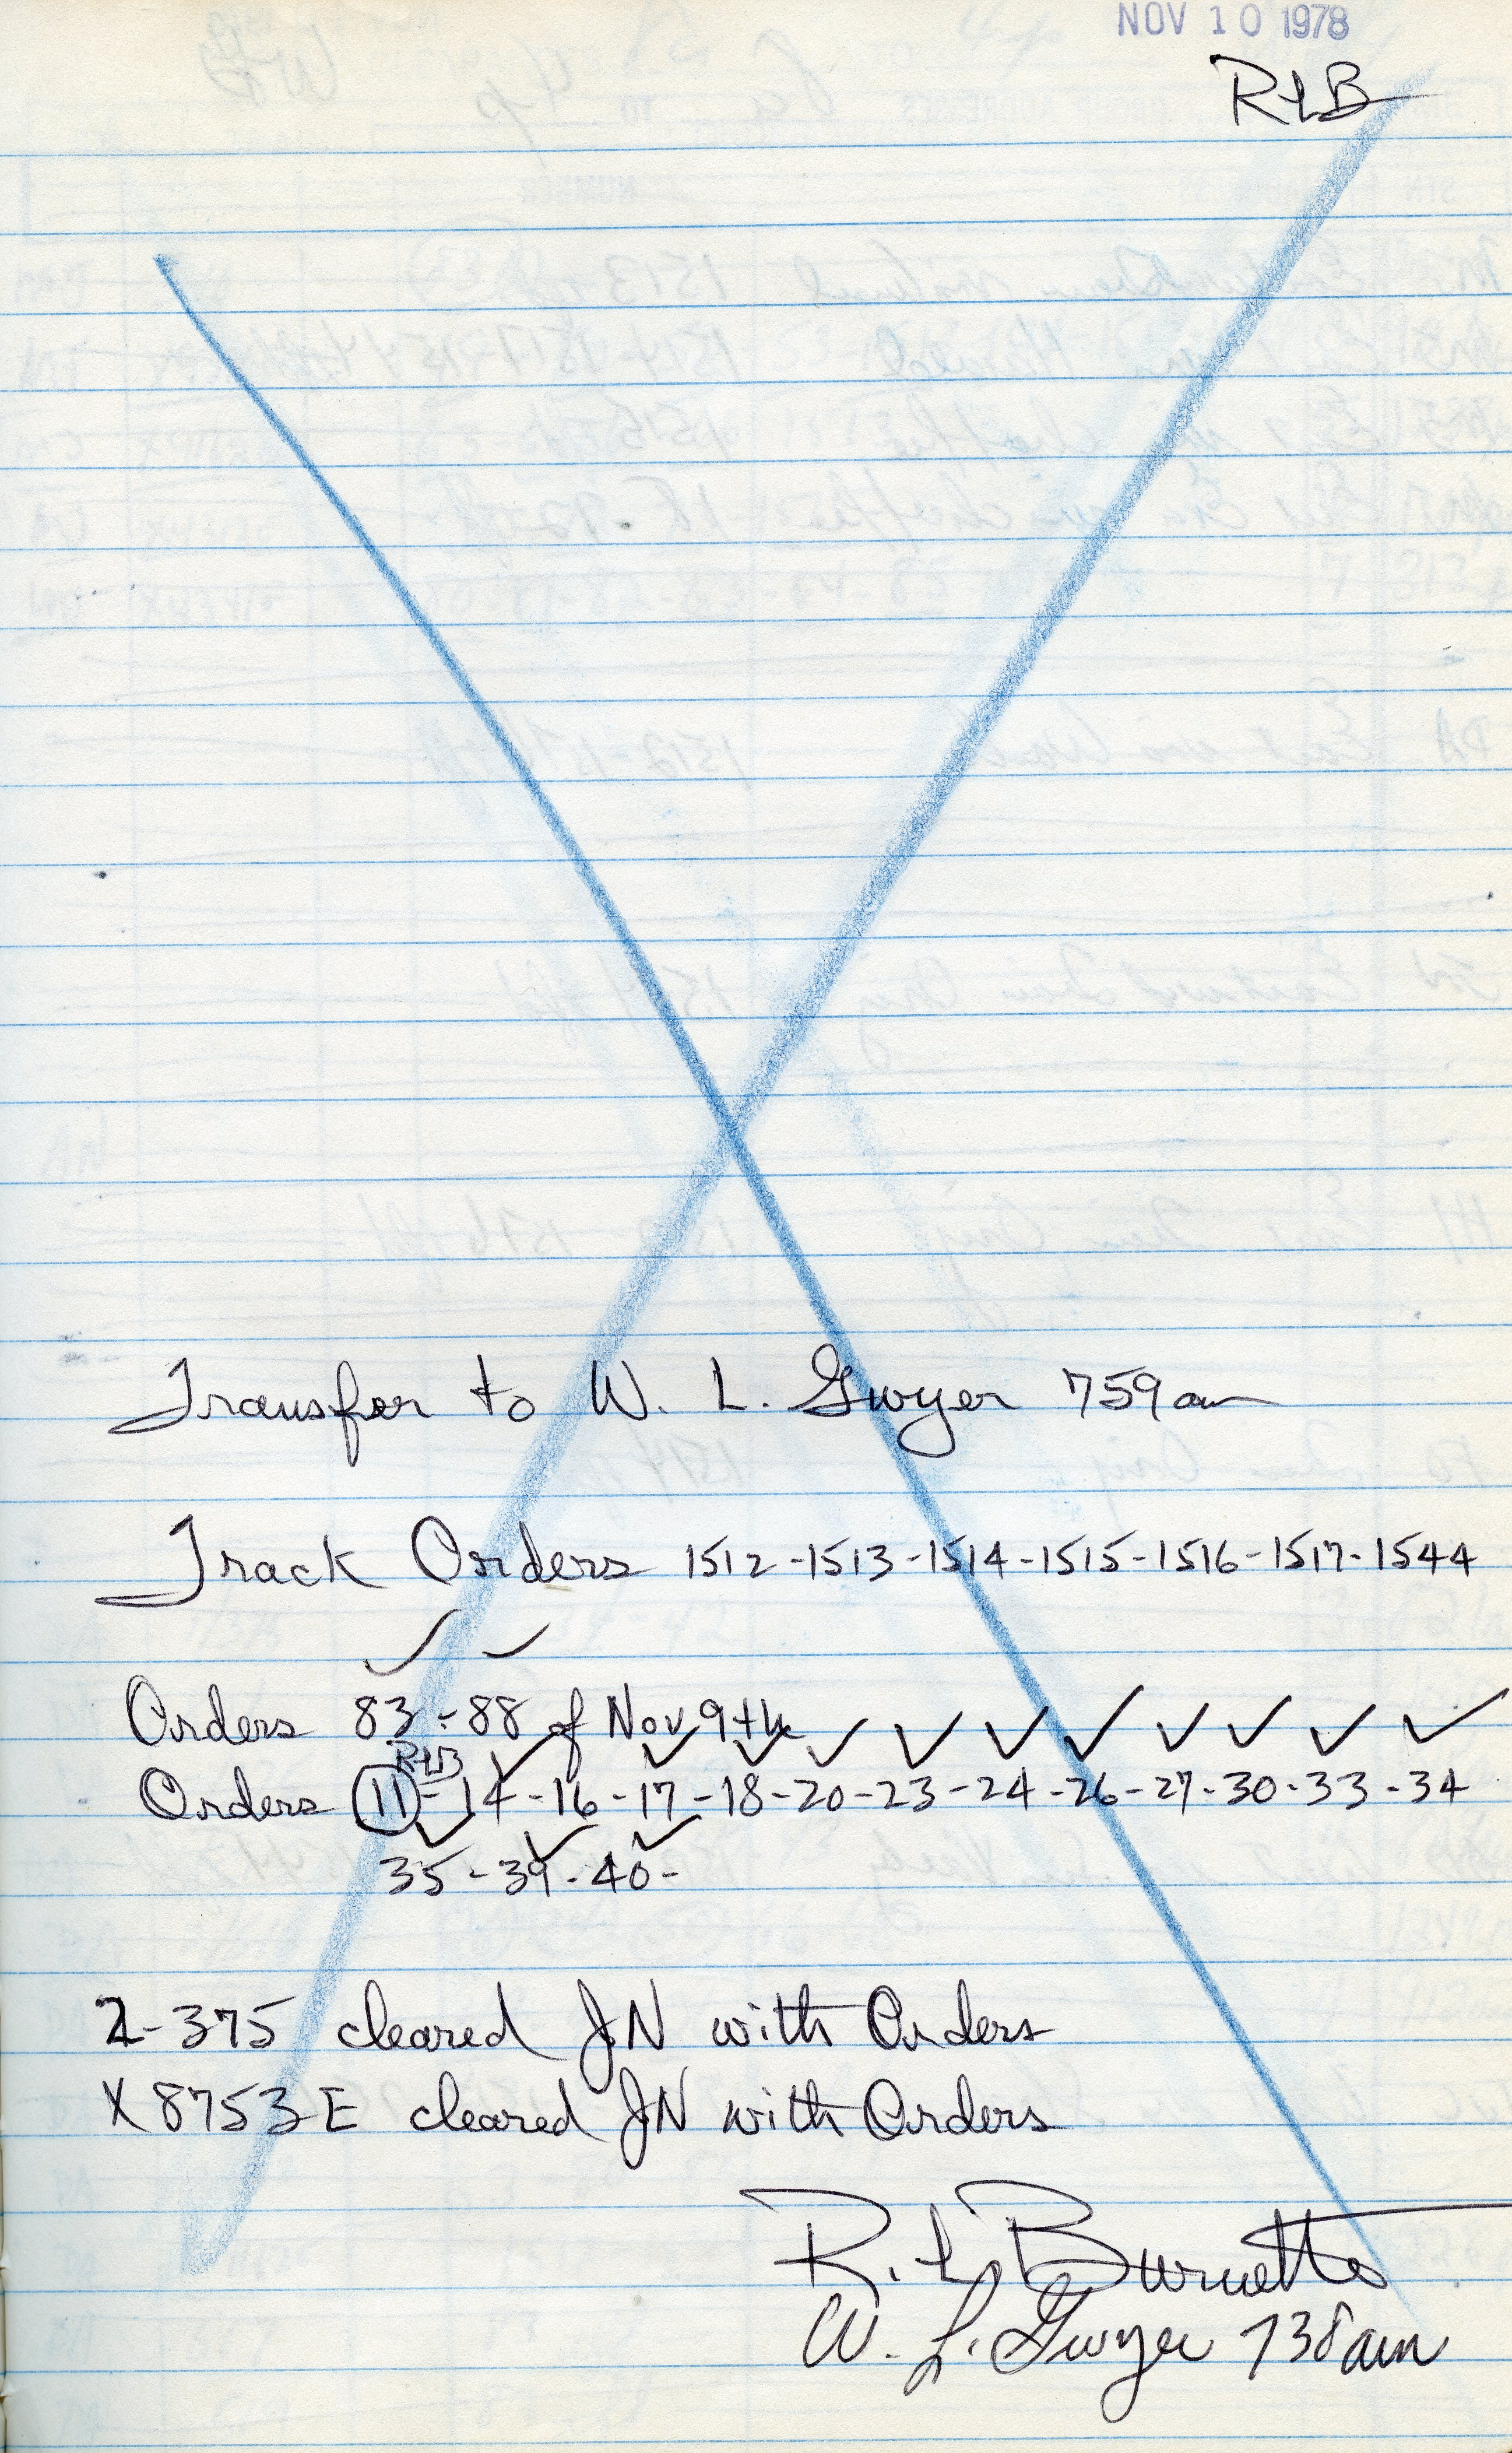 NOV 10 1978
RLB
Transfer to W. L. Gwyer 759am
Track Orders 1512-1513-1514-1515-1516-1517-1544
Orders 83-88 of Nov 9th
RLB
Orders 11-14-16-17-18-20-23-24-26-27-30-33-34
35-39-40-
2-375 cleared JN with Orders
X8753E cleared JN with Orders
R. L. Burnette
W. L. Gwyer 738am